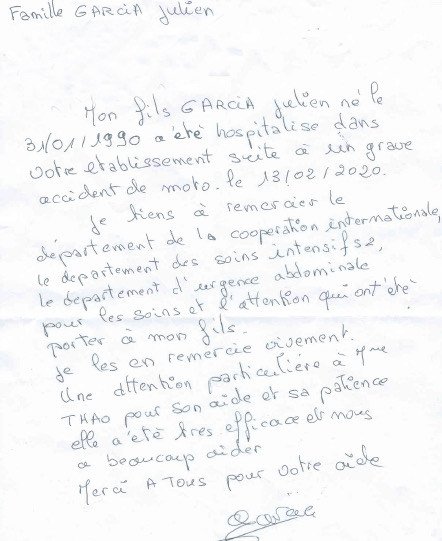 Famille GARCIA Julien
Mon fils GARCIA Julien né le
31/01/1990 a été hospitalise dans
votre etablissement suite à un grave
accident de moto. le 13/02/2020.
Je tiens à remercier le
département de la cooperation internationale,
le departement des soins intensifs 2,
le departement d'urgence abdominale
pour les soins et l'attention qui ont été
porter à mon fils.
Je les en remercie vivement.
Une attention particulière à Mme
THAO pour son aide et sa patience
elle a été tres efficace et nous
a beaucoup aider
Merci A TOUS pour votre aide